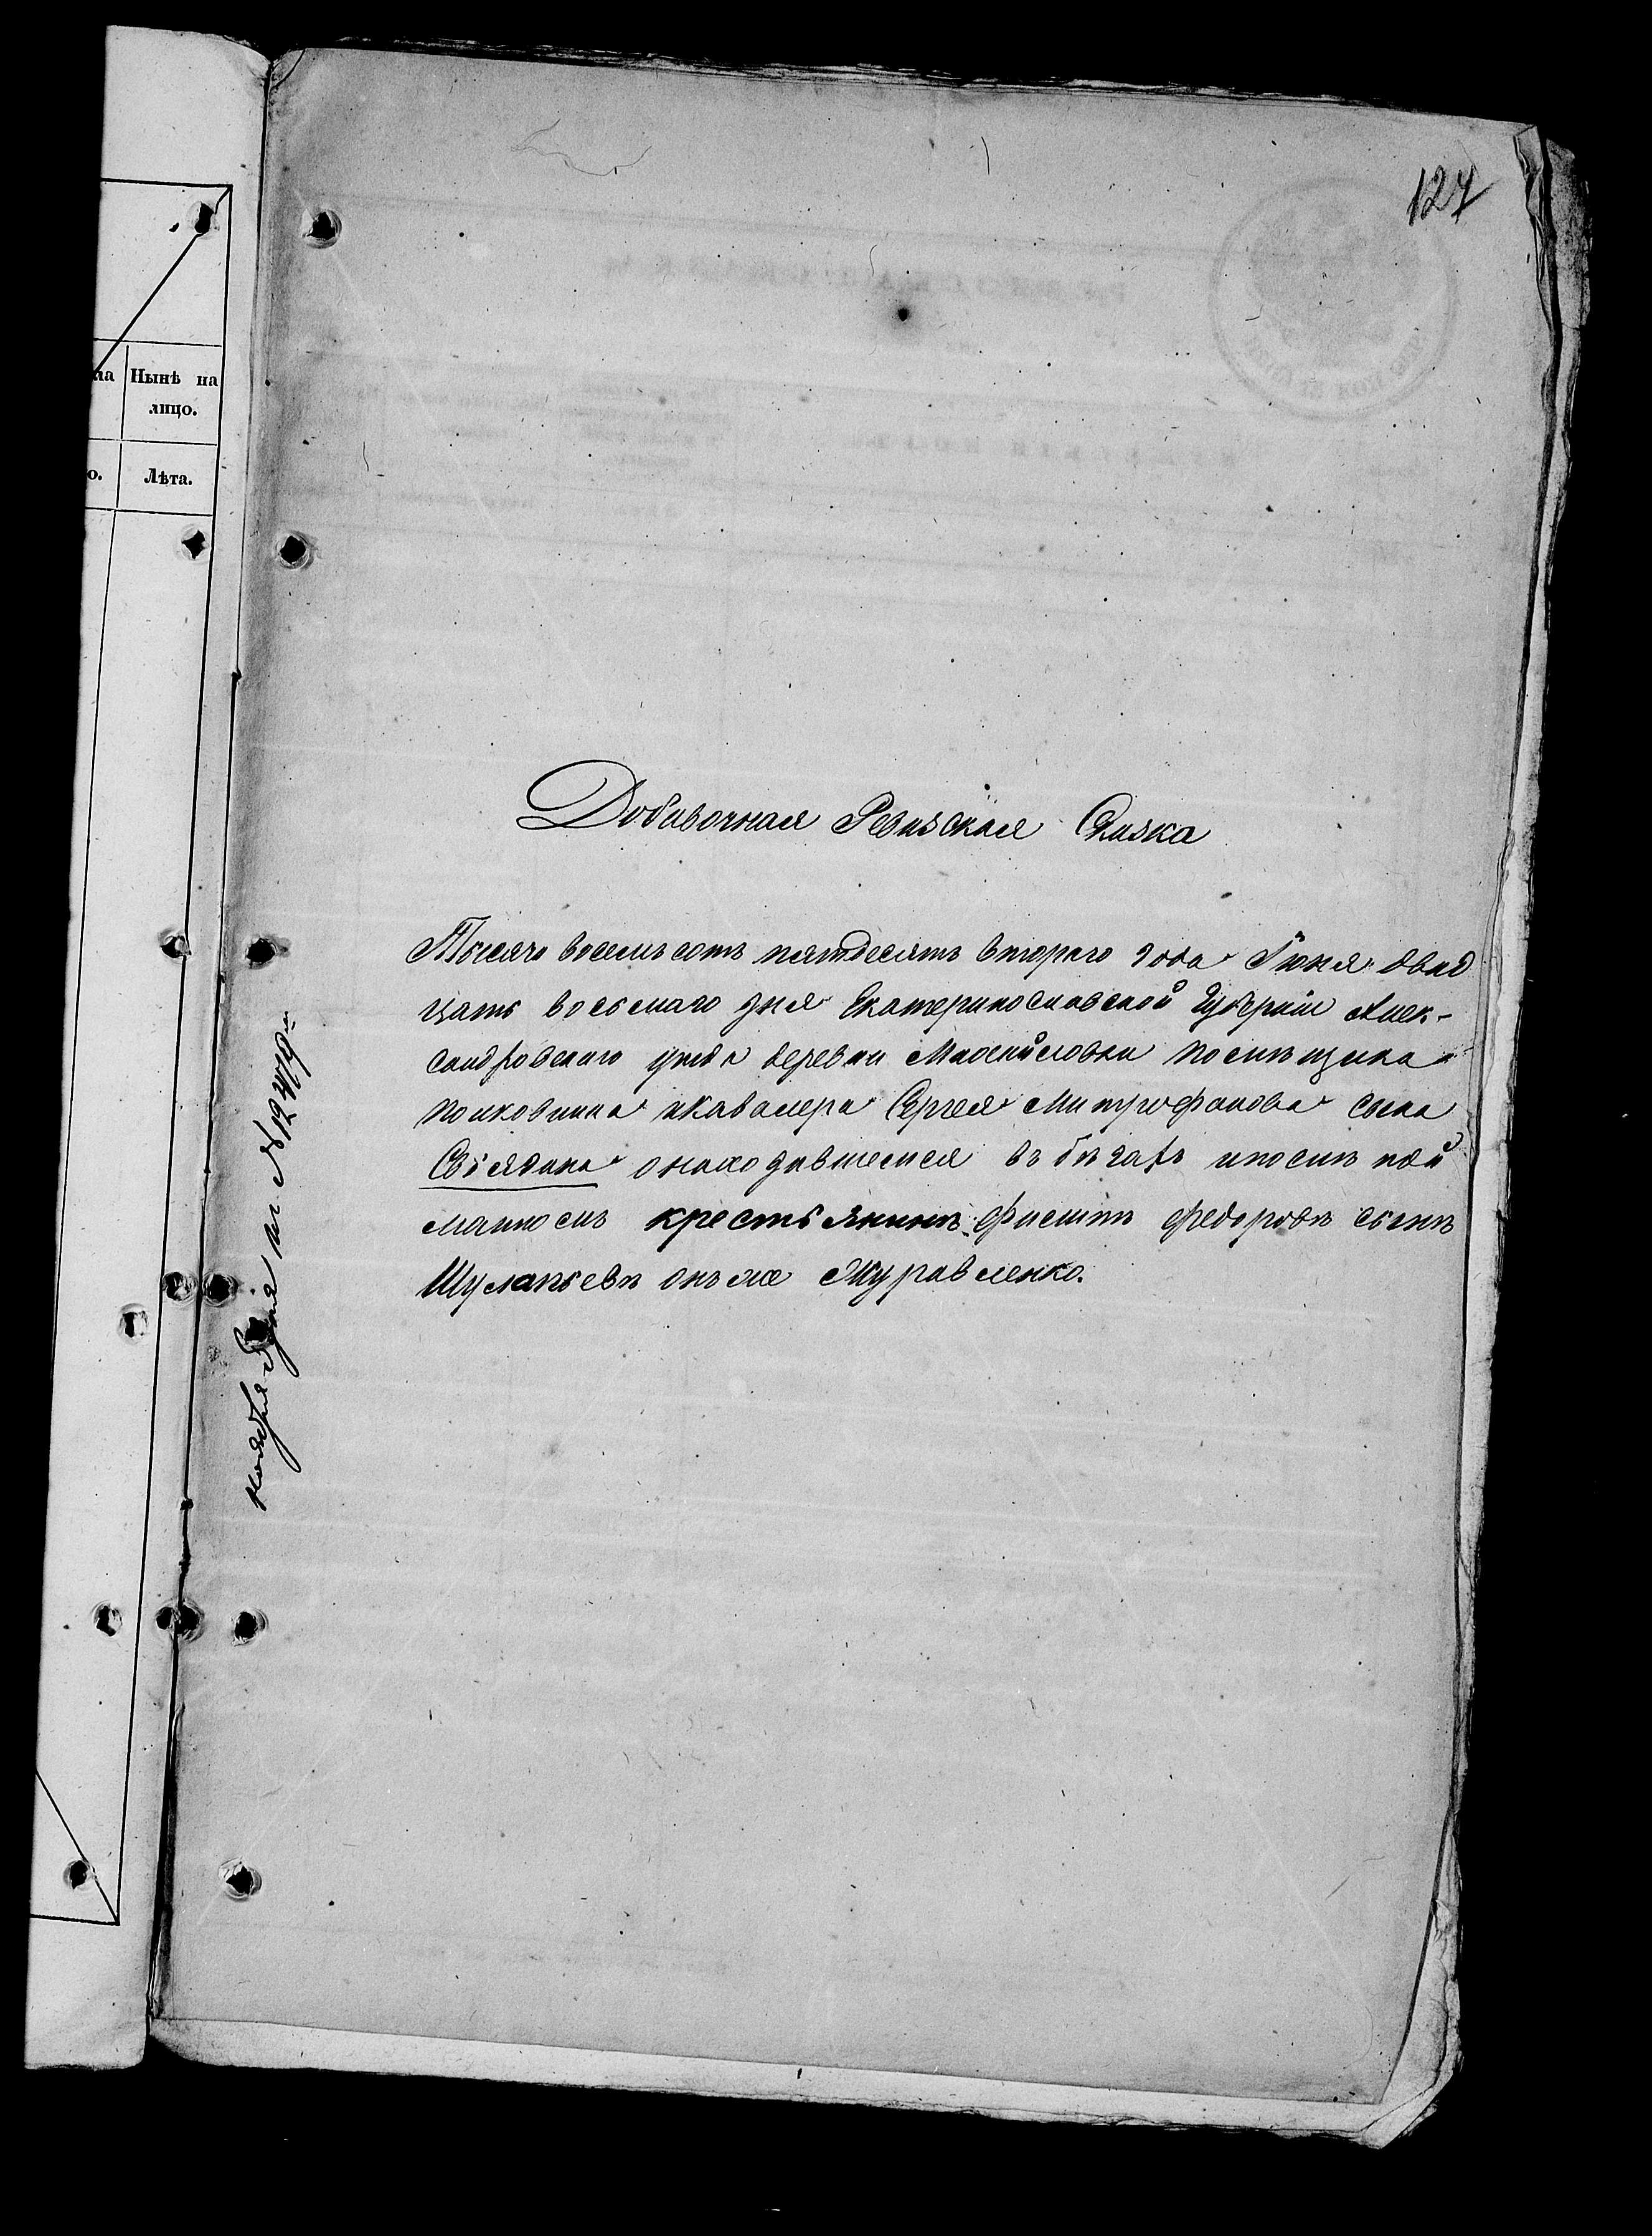 127
на
Нынѣ на
лицо.
о.
Лѣта.
Добавочная Ревизская Сказка
Тысяча восемьсотъ пятдесятъ втораго года Іюня двад
цать восьмаго дня Екатеринославской Губерніи Алек-
сандровскаго уезда деревни помѣщика
полковника и Кавалера Сергея Митрофанова сына
онаходившемся въ бѣгахъ ипосмѣ пой
манносмъ крестьянинѣ Федоровѣ сынѣ
онъ же Журавленко.
ноября дня № 1247